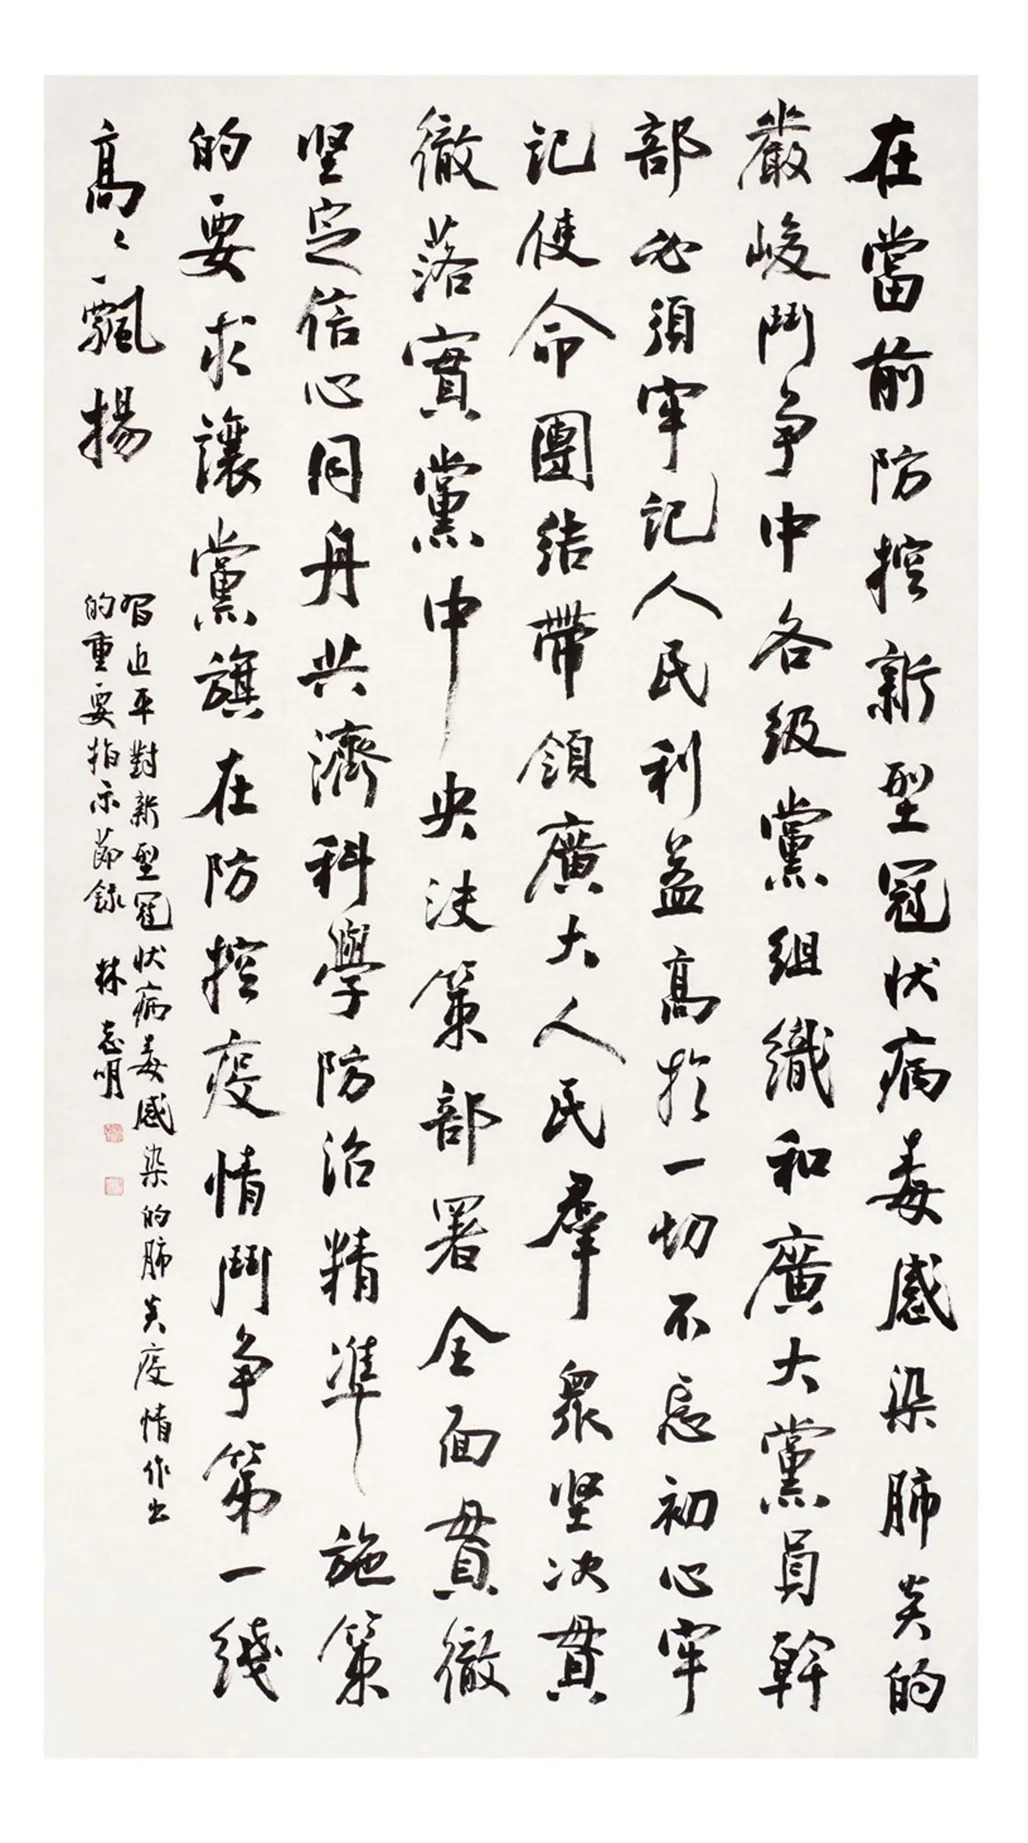 在當前防控新型冠状病毒感染肺炎的
嚴峻鬥争中各級黨組織和廣大黨員幹
部必須牢記人民利益高於一切不忘初心牢
記使命團結帶領廣大人民羣衆坚决貫
徹落實黨中央決策部署全面貫徹
坚定信心同舟共濟科學防治精準施策
的要求讓黨旗在防控疫情鬥争第一綫
高々飄揚
習近平對新型冠状病毒感染的肺炎疫情作出
的重要指示節録 林志明